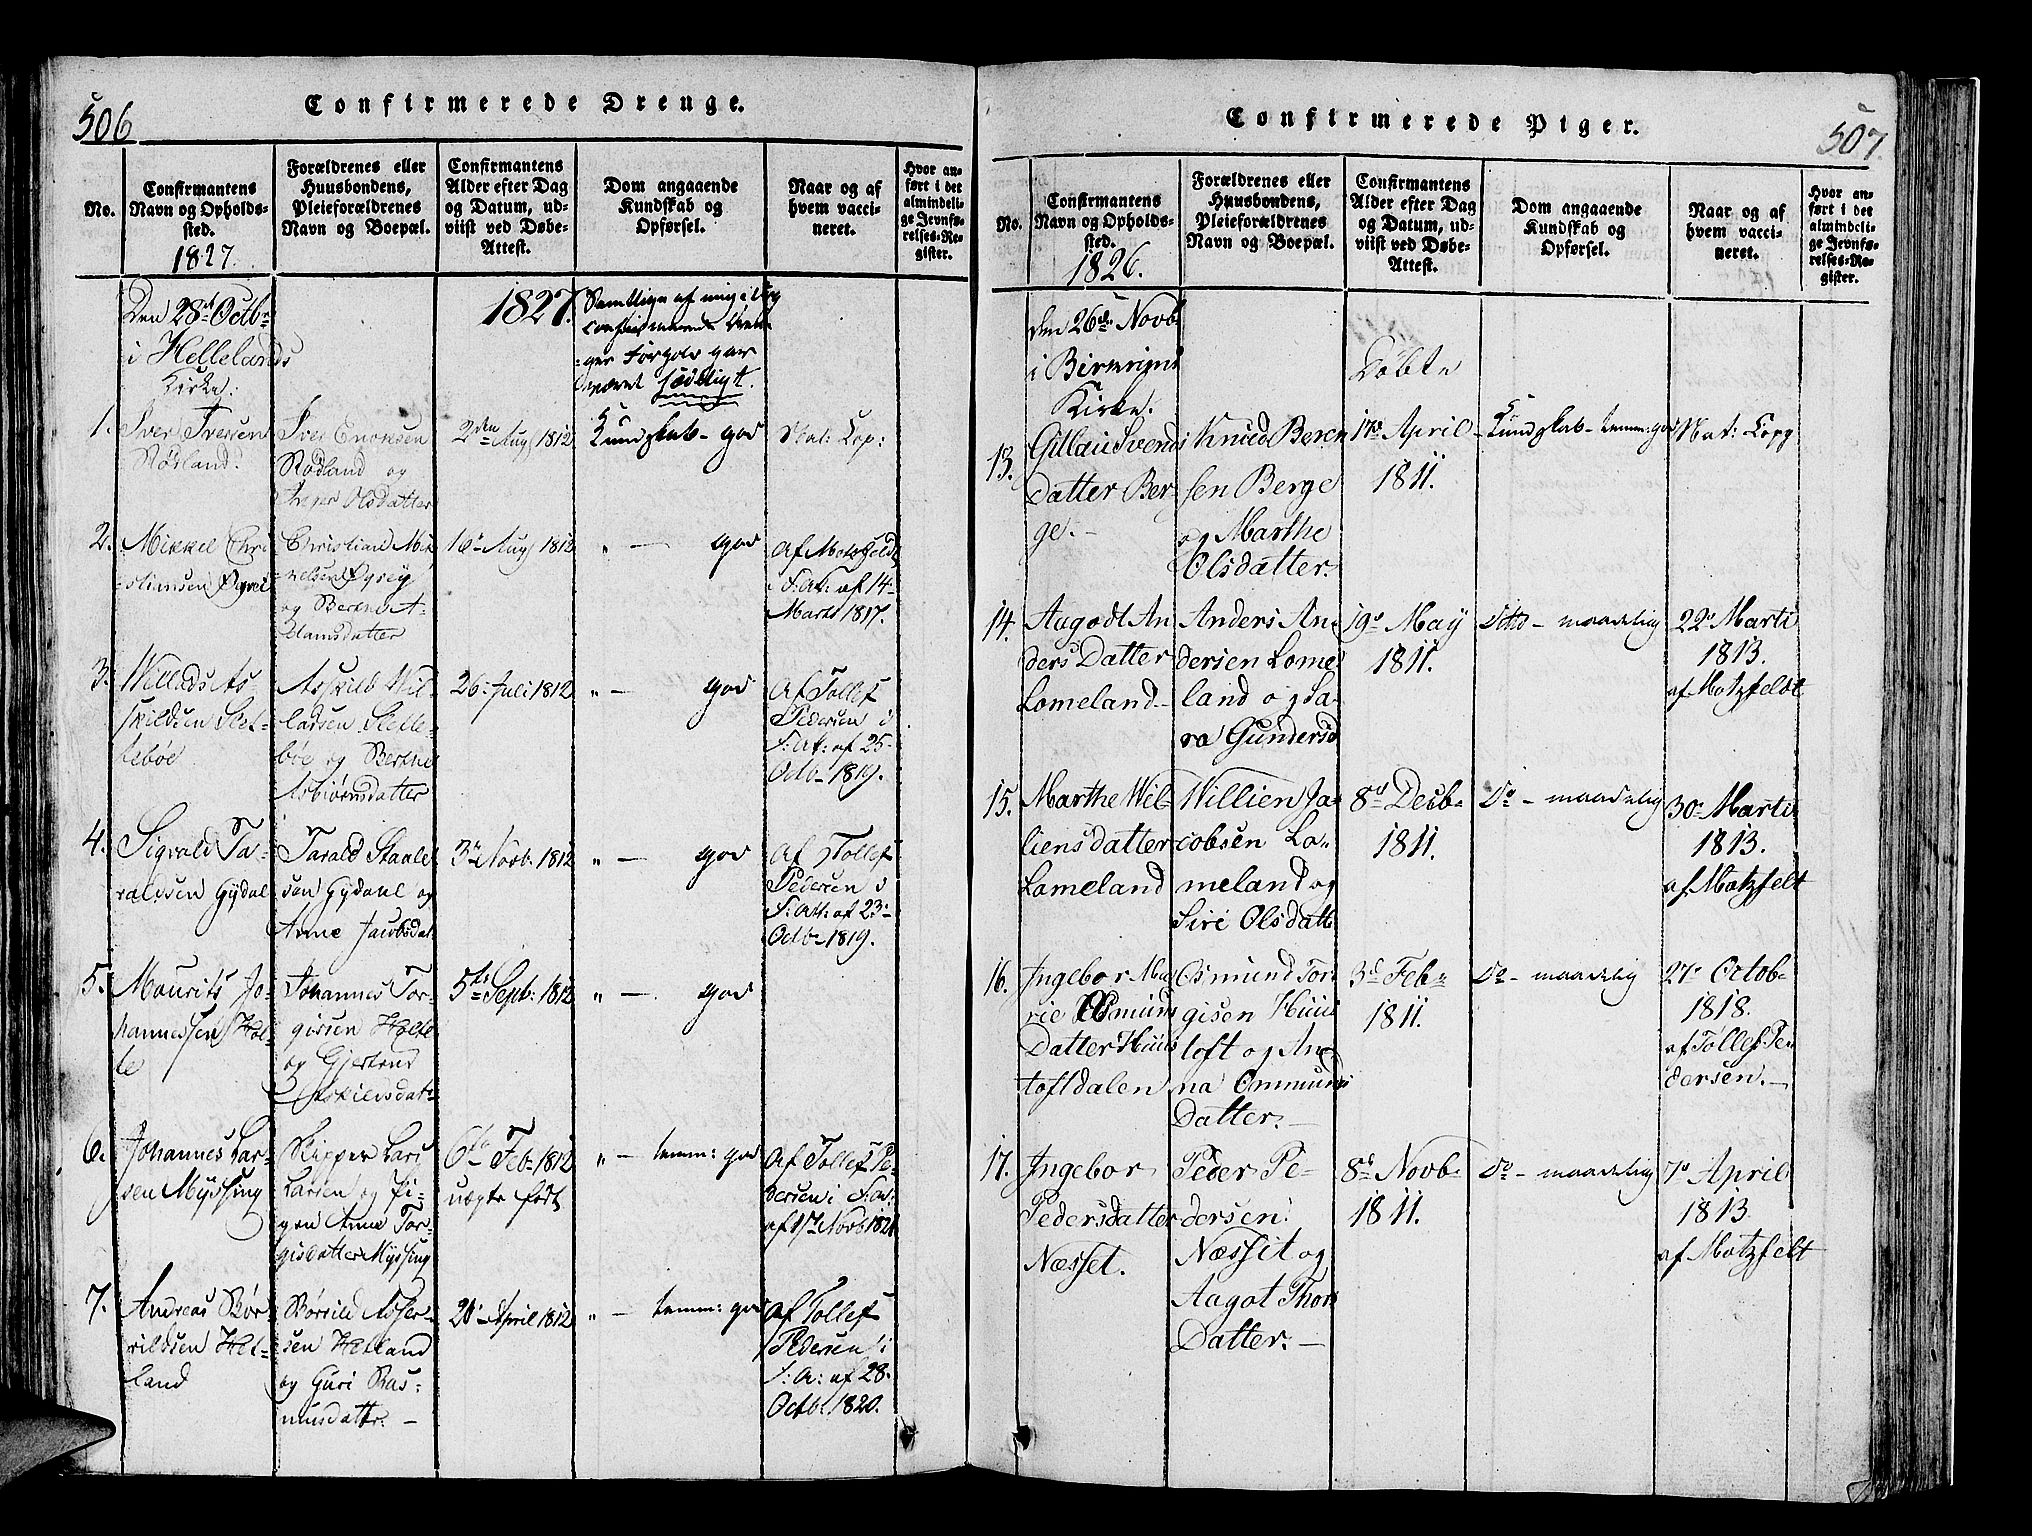 506
Confirmerede Drenge.
No.
Confirmantens
Navn og Opholds-
sted.
1827.
Forældrenes eller
Huusbondens,
Pleieforældrenes
Navn og Boepæl.
Confirmantens
Alder efter Dag
og Datum, ud-
viist ved Døbe-
Attest.
Dom angaaende
Kundskab og
Opførsel.
Naar og af
hvem vacci-
neret.
Hvor an-
ført i det
almindeli-
ge Jevnfø-
relses-Re-
gister.
Den 28d Octbr
i Hellelands
Kirke:
1827.
Samtlige af mig i Dag
confirmerede Dren-
ger Forhold har
været sædeligt.
1.
Iver Iversen
Rødland.
Iver Enoksen
Rødland og
Inger Olsdatter
2den Aug 1812
Kundskab - god
Nat: Kop:
2.
Mikkel Chri
-stiansen Øgrei
Christian Mik
-kelsen Øgrey
og Berthe A-
damsdatter
16de Aug 1812
" — god
Af Motzfeldt
i S: At: af 14-
Marts 1817.
3.
Willads As
kildsen Slet-
tebøe
Asskild Wil-
ladsen Slette-
bøe og Berthe
Asbiørnsdatter
26: Juli 1812
" — god
Af Tollef
Pedersen i
S: At: af 25-
Octb 1819.
4.
Sigvald Ta-
raldsen Gydal
Tarald Staale
sen Gydahl og
Anne Jacobsdat
3de Novb: 1812
" — god
Af Tollef
Pedersen i
S: At: af 23-
Octb 1819.
5.
Mourits Jo-
hannessen Hol-
te
Johannes Tor-
gersen Holte
og Gjertrud
Eskildsdat-
5te Septb: 1812
" — god
6.
Johannes Lar-
sen Myssing
Skipper Lars
Larsen og Pi-
gen Anne Tor-
gisdatter Myssing
6te Feb- 1812
uægte født
" — temm: god
Af Tollef Pe-
dersen i S: at:
af 17 Novb 1821
7.
Andreas Bør
rildsen Het-
land
Børrild Asser-
sen Hetland
og Guri Ras-
musdattr. —
20- April 1812
" — temm: god
Af Tollef
Pedersen i
S: A: af 28-
Octbr 1820.
507.
Confirmerede Piger.
No.
Confirmantens
Navn og Opholds-
sted.
1826.
Forældrenes eller
Huusbondens,
Pleieforældrenes
Navn og Boepæl.
Confirmantens
Alder efter Dag
og Datum, ud-
viist ved Døbe-
Attest.
Dom angaaende
Kundskab og
Opførsel.
Naar og af
hvem vacci-
neret.
Hvor an-
ført i det
almindeli-
ge Jevnfø-
relses-Re-
gister.
den 26de Novb
i Birkrims
Kirke.
Døbte
13.
Svends
datter Ber-
ge. -
Knud Beren
sen Berge
og Marthe
Olsdatter.
17de April
1811.
Kundskab temm: god
Nat: Kopp
14.
Aagodt An
ders Datter
Lomeland -
Anders An-
dersen Lome
land og Sa-
ra Gundersd
19de May
1811.
Ditto - maadelig
22de Marti
1813.
af Motzfeldt
15.
Marthe Wil-
liensdatter
Lomeland
Willien Ja-
cobsen Lo-
meland og
Siri Olsdatt
8d Decb-
1811.
Do - maadelig
30- Marti
1813.
af Motzfelt
16.
Ingebor Ma
rie Osmuns
Datter Huus
toftdalen
Osmund Tor
gisen Huus
toft og An-
na Ommunds
Datter. —
3d Feb-
1811.
Do - maadelig
27- Octob-
1818.
af Tollef Pe
dersen. —
17.
Ingebor
Pedersdatter
Næsset.
Peder Pe-
dersen
Næsset og
Aagot Thors
Datter. —
8d Novb-
1811.
Do - maadelig
7de April
1813
af Motzfelt